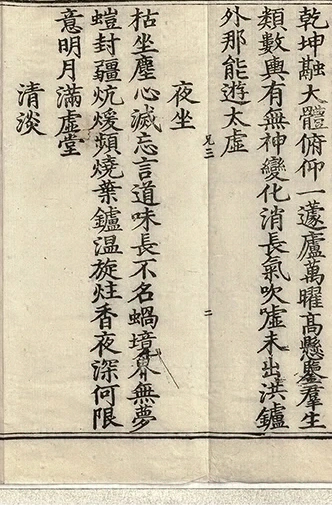 乾坤融大體俯仰一蘧廬萬曜高懸鑒羣生
類數輿有無神變化消長氣吹嘘未出洪鑪
外那能遊太虛
兄二
二
夜坐
枯坐塵心滅忘言道味長不名蝸境界無夢
螘封疆炕煖頻燒葉鑪温旋炷香夜深何限
意明月滿虛堂
清淡